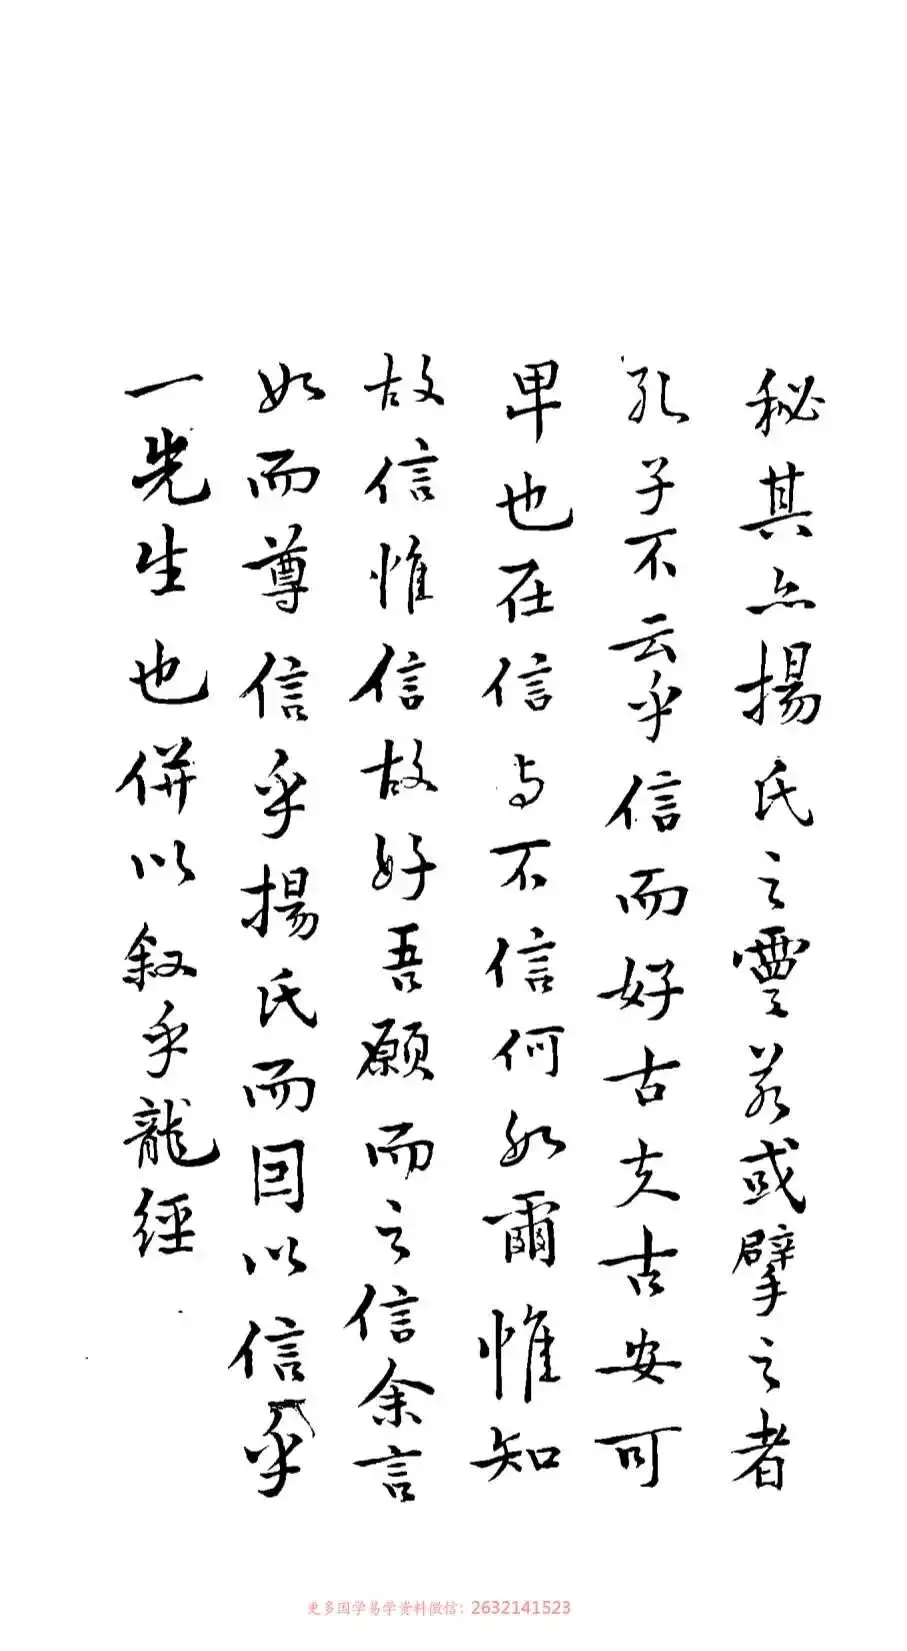 秘其亦揚氏之靈若或擘之者
孔子不云乎信而好古夫古安可
卑也在信与不信何如爾惟知
故信惟信故好吾願而之信余言
如而尊信乎揚氏而因以信乎
一先生也併以叙乎龍經
更多国学易学资料微信：2632141523